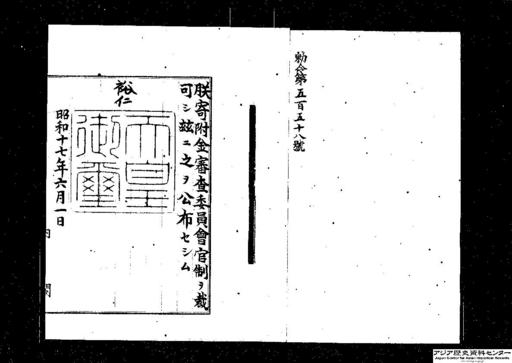 勅令第五百五十八號
朕寄附金審査委員會官制ヲ裁
可シ玆ニ之ヲ公布セシム
裕仁
天皇
御璽
昭和十七年六月一日
内閣
アジア歴史資料センター
Japan Center for Asian Historical Records